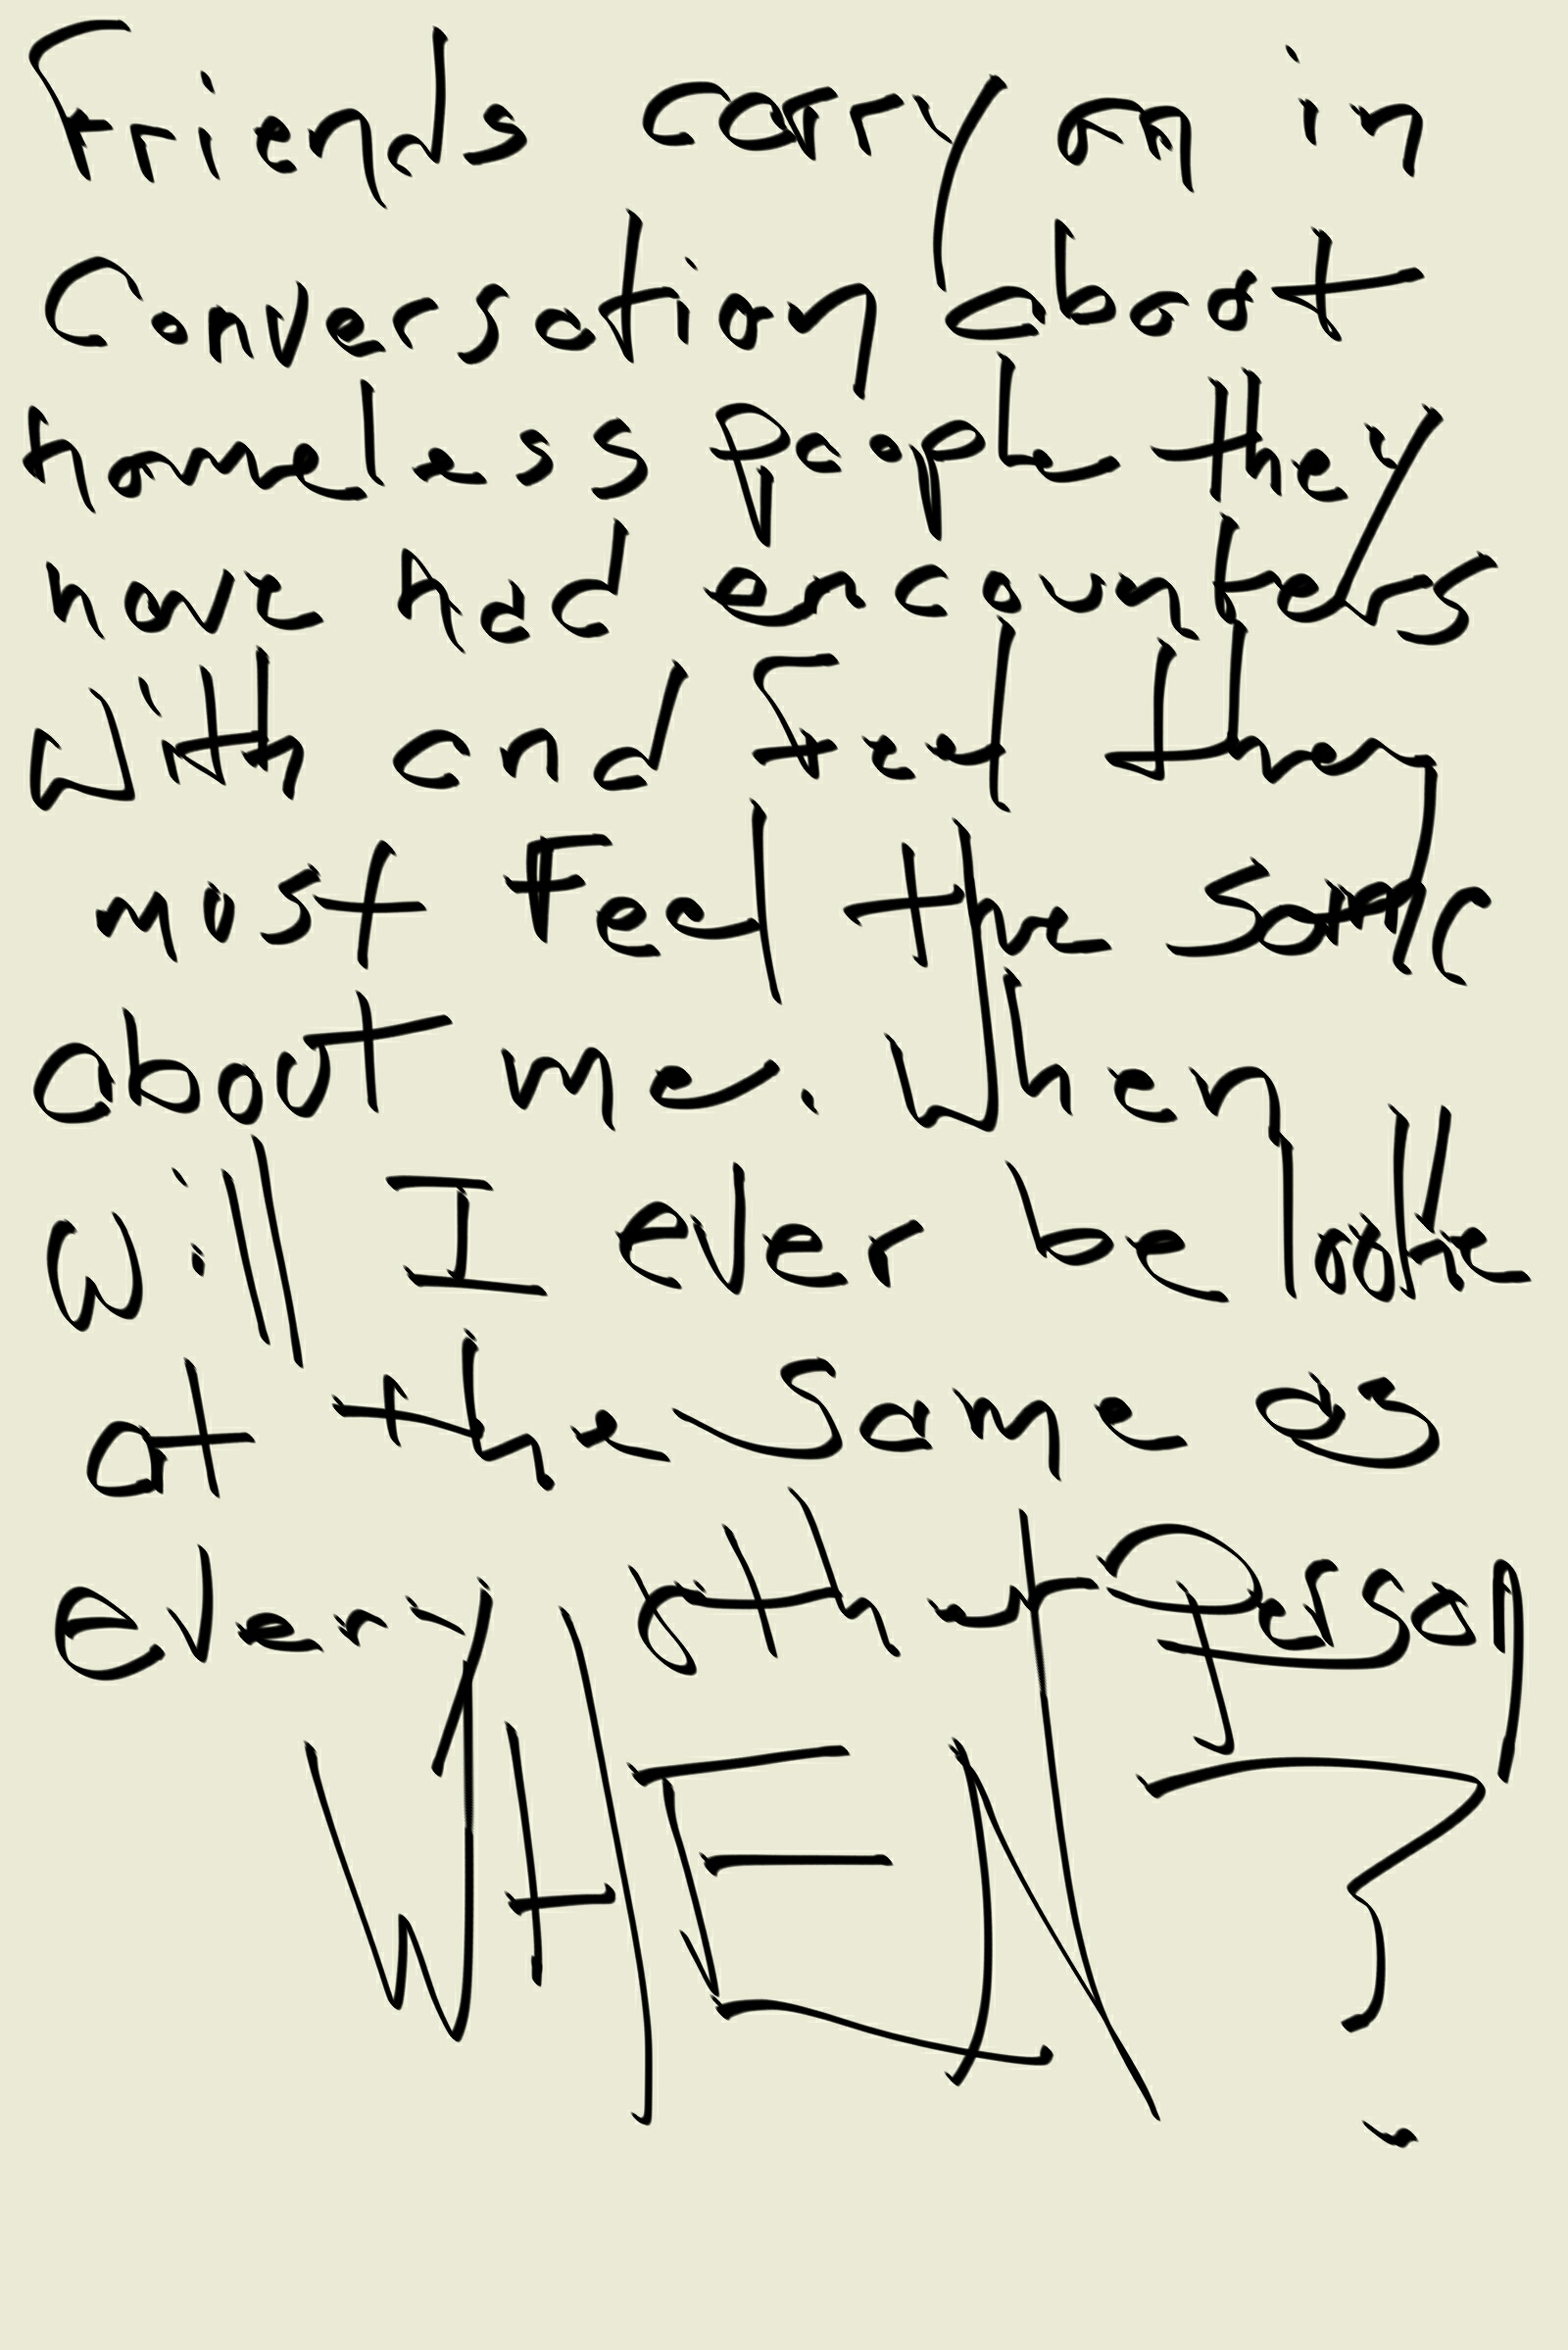 Friends carry on in
Conversation about
homeless people they
have had encounters
With and Feel they
most Feel the same
about me. When
will I ever be looke
at the same as
every other Person
WHEN?